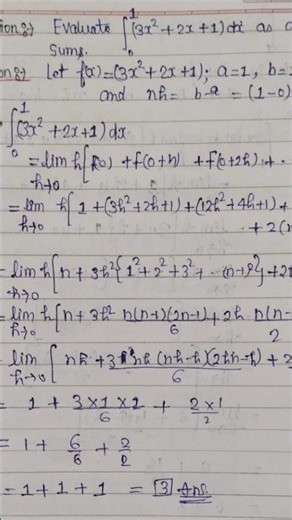 ion 8:) Evaluate ∫₀¹ (3x²+2x+1)dx as a
Sums.
on 8:) Let f(x)=(3x²+2x+1); a=1, b=
and nh = b-a = (1-0)
∫₀¹ (3x²+2x+1)dx
= lim h→0 h[f(0) + f(0+h) + f(0+2h) + .
= lim h→0 h[1+(3h²+2h+1)+(12h²+4h+1)+
+ 2(n
= lim h→0 h[n+3h²{1²+2²+3²+ . . (n-1)²}+2
= lim h→0 h[n+3h² n(n-1)(2n-1)/6 + 2h n(n-/2
lim h→0 [nh + 3 nh(nh-h)(2nh-h)/6 + 2
= 1 + 3×1×2/6 + 2×1/2
= 1 + 6/6 + 2/2
= 1+1+1 = 3 Ans.